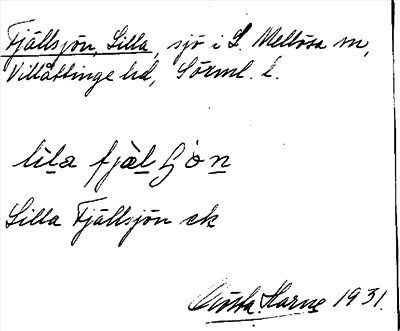 Fjällsjön, Lilla, sjö i L. Mellösa sn,
Villåttinge hd, Sörml. l.
lila fjälʃön
Lilla Fjällsjön ek
Gösta Harne 1931.